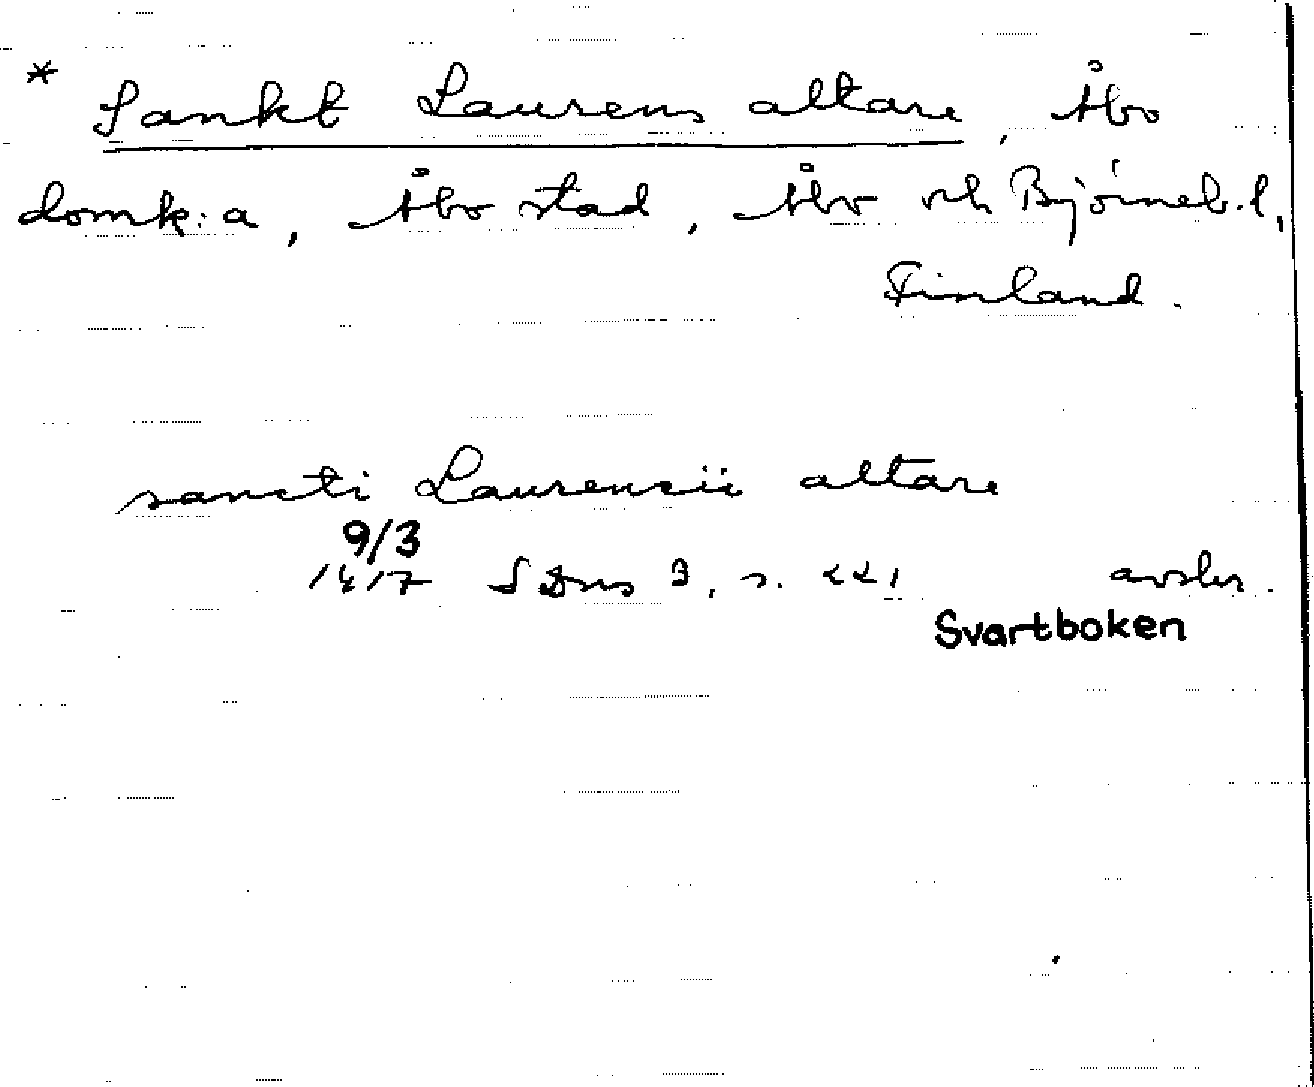 * Sankt Laurens altare, Åbo
domk:a, Åbo stad, Åbo och Björneb. l,
Finland.
sancti Laurencii altare
9/3
1417 SDns 3, s. 221 avskr.
Svartboken